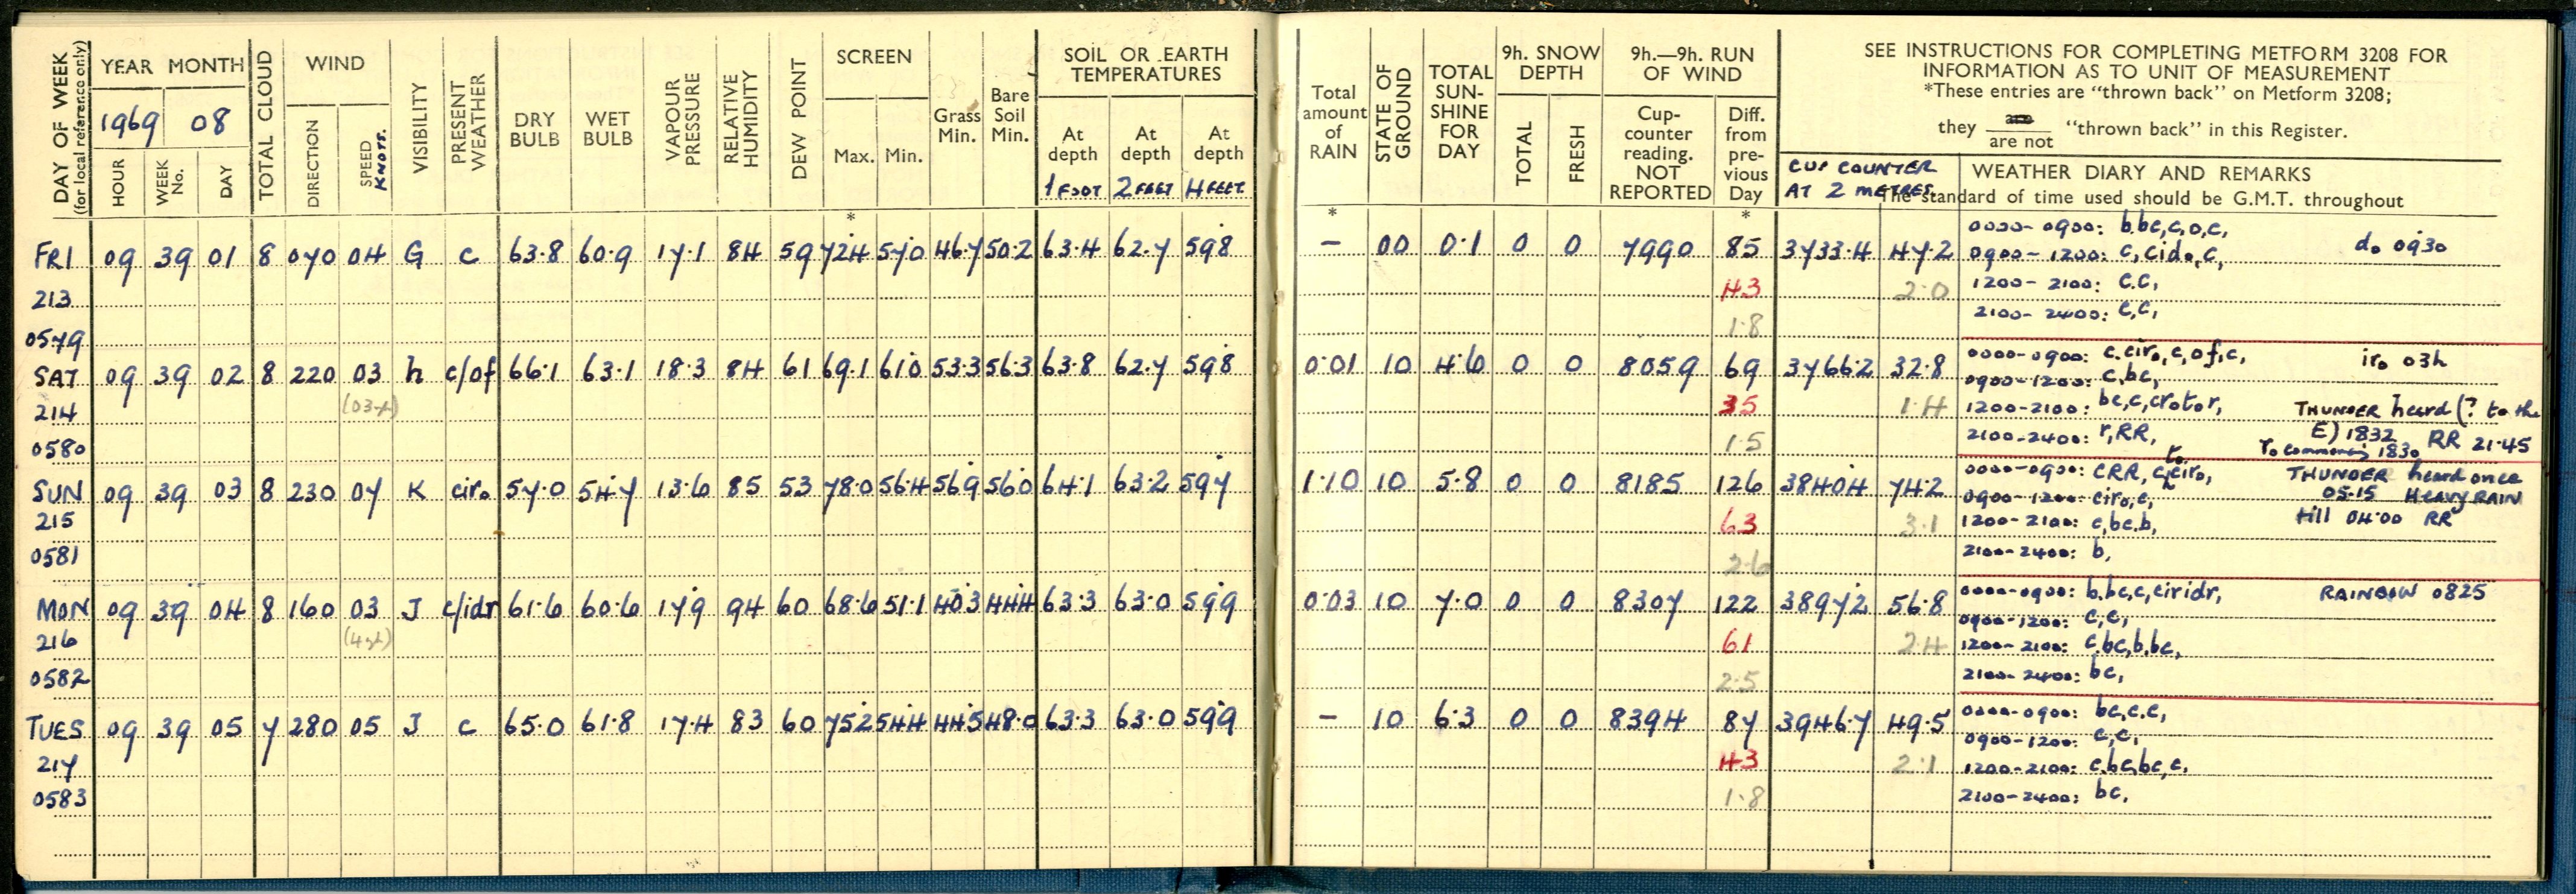 DAY OF WEEK (for local reference only)
YEAR MONTH
1969 08
HOUR WEEK No. DAY
TOTAL CLOUD
WIND
DIRECTION SPEED KNOTS.
VISIBILITY
PRESENT WEATHER
DRY BULB
WET BULB
VAPOUR PRESSURE
RELATIVE HUMIDITY
DEW POINT
SCREEN
Max. Min.
Grass Min.
Bare Soil Min.
SOIL OR EARTH TEMPERATURES
At depth 1 FOOT
At depth 2 FEET
At depth 4 FEET
Total amount of RAIN
STATE OF GROUND
TOTAL SUN-SHINE FOR DAY
9h. SNOW DEPTH
TOTAL FRESH
9h.—9h. RUN OF WIND
Cup-counter reading. NOT REPORTED
Diff. from pre-vious Day
SEE INSTRUCTIONS FOR COMPLETING METFORM 3208 FOR
INFORMATION AS TO UNIT OF MEASUREMENT
*These entries are "thrown back" on Metform 3208;
they are / are not "thrown back" in this Register.
CUP COUNTER AT 2 METRES
WEATHER DIARY AND REMARKS
The standard of time used should be G.M.T. throughout
* * *
FRI 09 39 01 8 070 04 G c 63.8 60.9 17.1 84 59 72.4 57.0 46.7 50.2 63.4 62.7 59.8 — 00 0.1 0 0 7990 85 3733.4 47.2
213 43 2.0
0579 1.8
0000-0900: b,bc,c,o,c,
0900-1200: c,cido,c, do 0930
1200-2100: c.c,
2100-2400: c,c,
SAT 09 39 02 8 220 03 h c/of 66.1 63.1 18.3 84 61 69.1 61.0 53.3 56.3 63.8 62.7 59.8 0.01 10 4.6 0 0 8059 69 3766.2 32.8
214 35 1.4
0580 1.5
0000-0900: c.ciro,c,of,c, iro 03h
0900-1200: c,bc,
1200-2100: bc,c,crotor, THUNDER heard (? to the
E) 1832 RR 21.45
2100-2400: r,RR, ro commencing 1830
SUN 09 39 03 8 230 07 K ciro 57.0 54.7 13.6 85 53 78.0 56.4 56.9 56.0 64.1 63.2 59.7 1.10 10 5.8 0 0 8185 126 3840.4 74.2
215 63 3.1
0581 2.6
0000-0900: cRR, c,ciro, THUNDER heard once
05.15 HEAVY RAIN
0900-1200: ciro,c,
1200-2100: c,bc.b, till 04.00 RR
2100-2400: b,
MON 09 39 04 8 160 03 J c/idr 61.6 60.6 17.9 94 60 68.6 51.1 40.3 44.4 63.3 63.0 59.9 0.03 10 7.0 0 0 8307 122 3897.2 56.8
216 61 2.4
0582 2.5
0000-0900: b.bc,c,ciridr, RAINBOW 0825
0900-1200: c,c,
1200-2100: c.bc,b.bc,
2100-2400: bc,
TUES 09 39 05 7 280 05 J c 65.0 61.8 17.4 83 60 75.2 54.4 44.5 48.0 63.3 63.0 59.9 — 10 6.3 0 0 8394 87 3946.7 49.5
217 43 2.1
0583 1.8
0000-0900: bc,c.c,
0900-1200: c,c,
1200-2100: c.bc,bc,c,
2100-2400: bc,